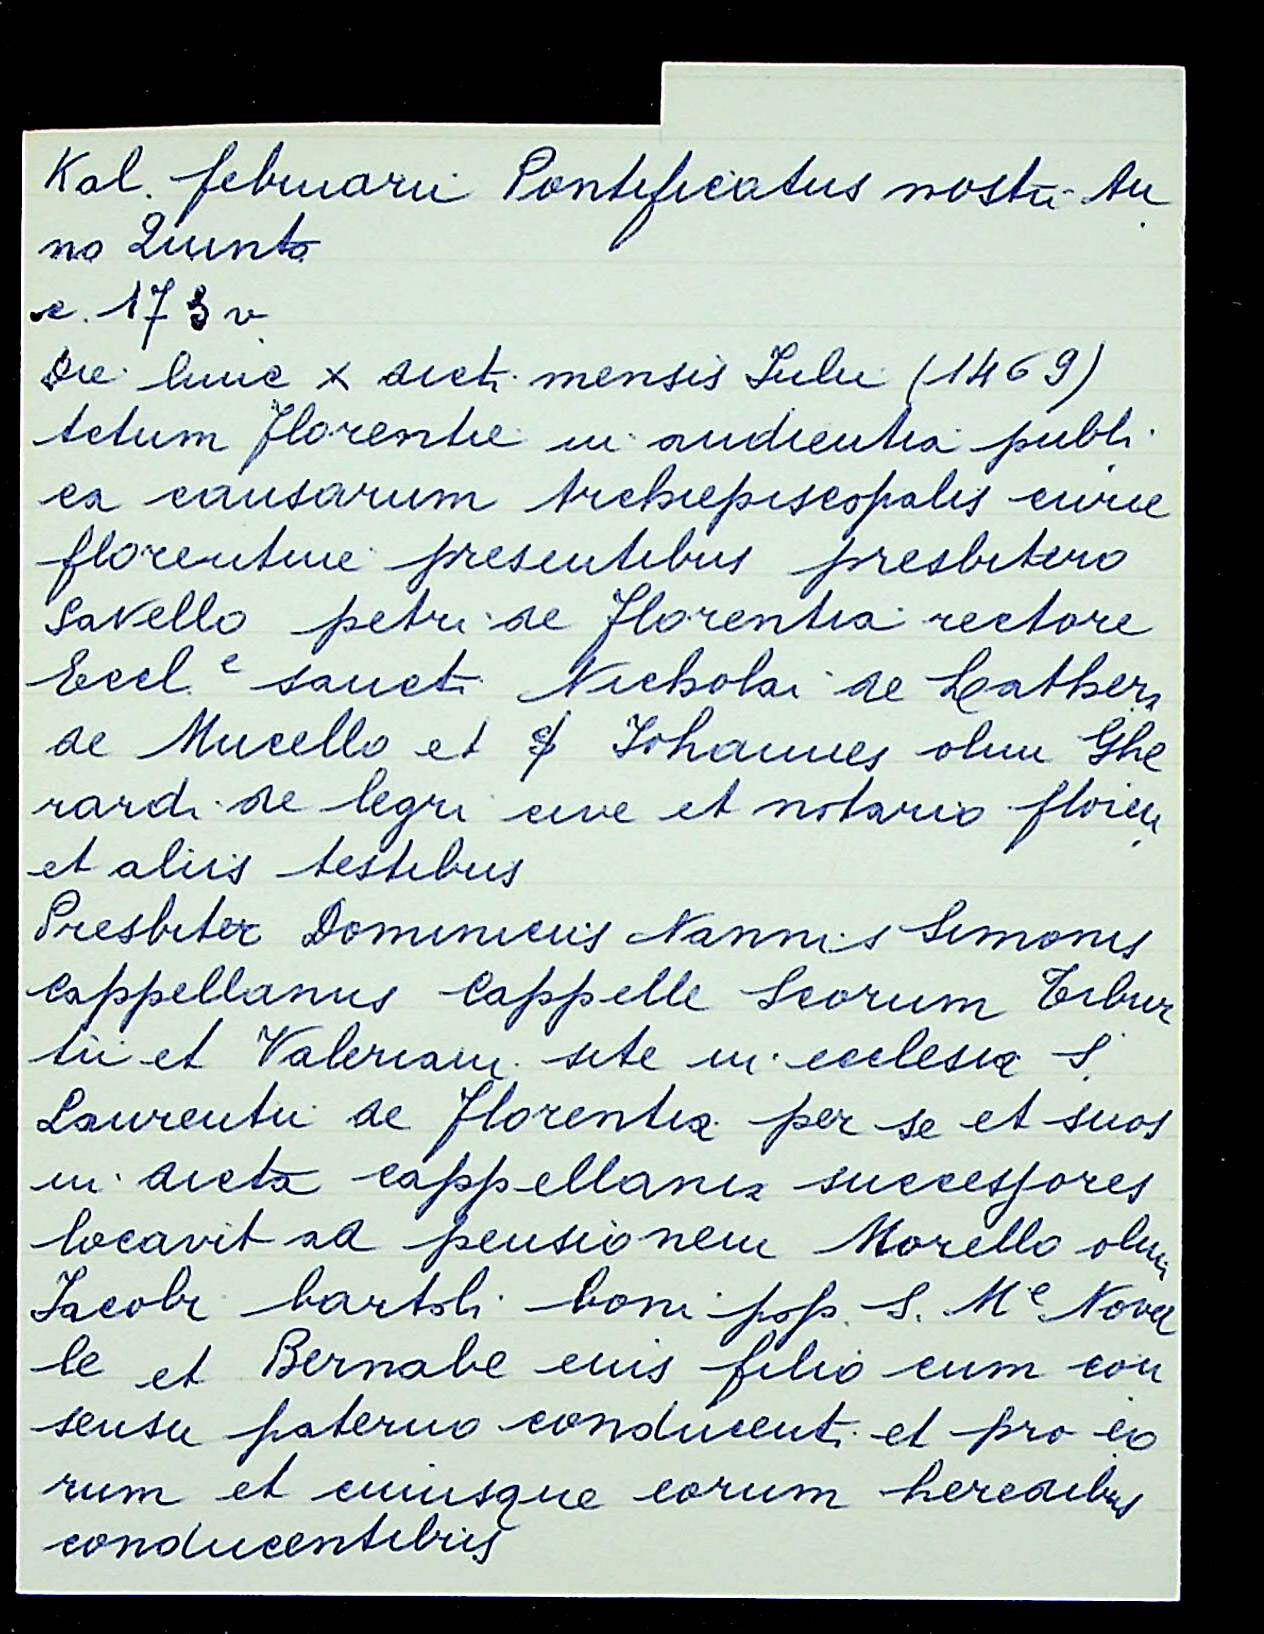 Kal. februarii Pontificatus nostri An
no Quinto
c. 173 v.
Die lune X dicti mensis Iulii (1469)
Actum Florentie in audientia publi
ca causarum Archiepiscopalis curie
florentine presentibus presbitero
Savello petri de Florentia rectore
Eccl.e sancti Nicholai de Lathera
de Mucello et Iohannes olim Ghe
rardi de legri cive et notario floren
et aliis testibus
Presbiter Dominicus Nannis Simonis
Cappellanus Cappelle Scorum Tibur
tii et Valeriani site in ecclesia S.
Laurentii de Florentia per se et suos
in dicta cappellania successores
locavit ad pensionem Morello olim
Iacobi bartoli boni pop. S. Me Novel
le et Bernabe eius filio cum con
sensu paterno conducenti et pro eo
rum et cuiusque eorum heredibus
conducentibus